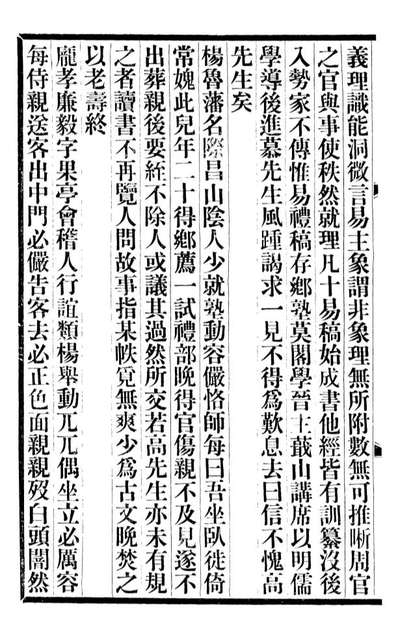 義理識能洞微言易主象謂非象理無所附數無可推晰周官
之官與事使秩然就理凡十易稿始成書他經皆有訓纂沒後
入勢家不傳惟易禮稿存鄉塾莫閣學晉主蕺山講席以明儒
學導後進慕先生風踵謁求一見不得爲歎息去曰信不愧高
先生矣
楊魯藩名際昌山陰人少就塾動容儼恪師每曰吾坐臥徙倚
常媿此兒年二十得鄉薦一試禮部晚得官傷親不及見遂不
出葬親後要絰不除人或議其過然所交若高先生亦未有規
之者讀書不再覽人問故事指某帙覓無爽少爲古文晚焚之
以老壽終
龐孝廉毅字果亭會稽人行誼類楊舉動兀兀偶坐立必厲容
每侍親送客出中門必儼告客去必正色面親親歿白頭闇然